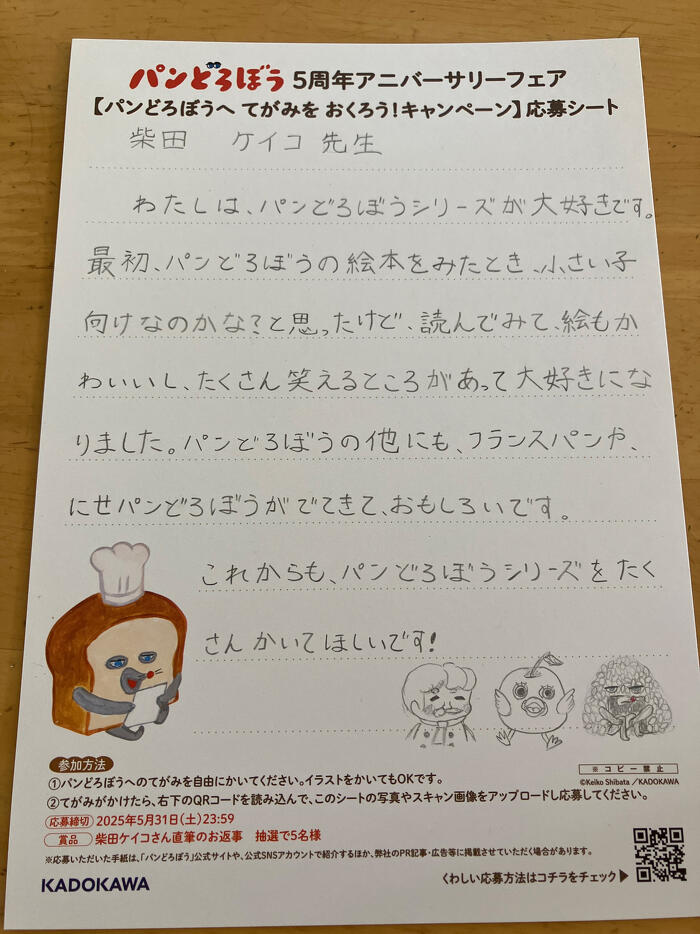 パンどろぼう 5周年アニバーサリーフェア
【パンどろぼうへ てがみを おくろう！キャンペーン】応募シート
柴田 ケイコ 先生
わたしは、パンどろぼうシリーズが大好きです。
最初、パンどろぼうの絵本をみたとき、小さい子
向けなのかな？と思ったけど、読んでみて、絵もか
わいいし、たくさん笑えるところがあって大好きにな
りました。パンどろぼうの他にも、フランスパンや、
にせパンどろぼうがでてきて、おもしろいです。
これからも、パンどろぼうシリーズをたく
さんかいてほしいです！
参加方法
※コピー禁止
©Keiko Shibata／KADOKAWA
①パンどろぼうへのてがみを自由にかいてください。イラストをかいてもOKです。
②てがみがかけたら、右下のQRコードを読み込んで、このシートの写真やスキャン画像をアップロードし応募してください。
応募締切 2025年5月31日(土)23:59
賞品 柴田ケイコさん直筆のお返事 抽選で5名様
※応募いただいた手紙は、「パンどろぼう」公式サイトや、公式SNSアカウントで紹介するほか、弊社のPR記事・広告等に掲載させていただく場合があります。
KADOKAWA
くわしい応募方法はコチラをチェック▶